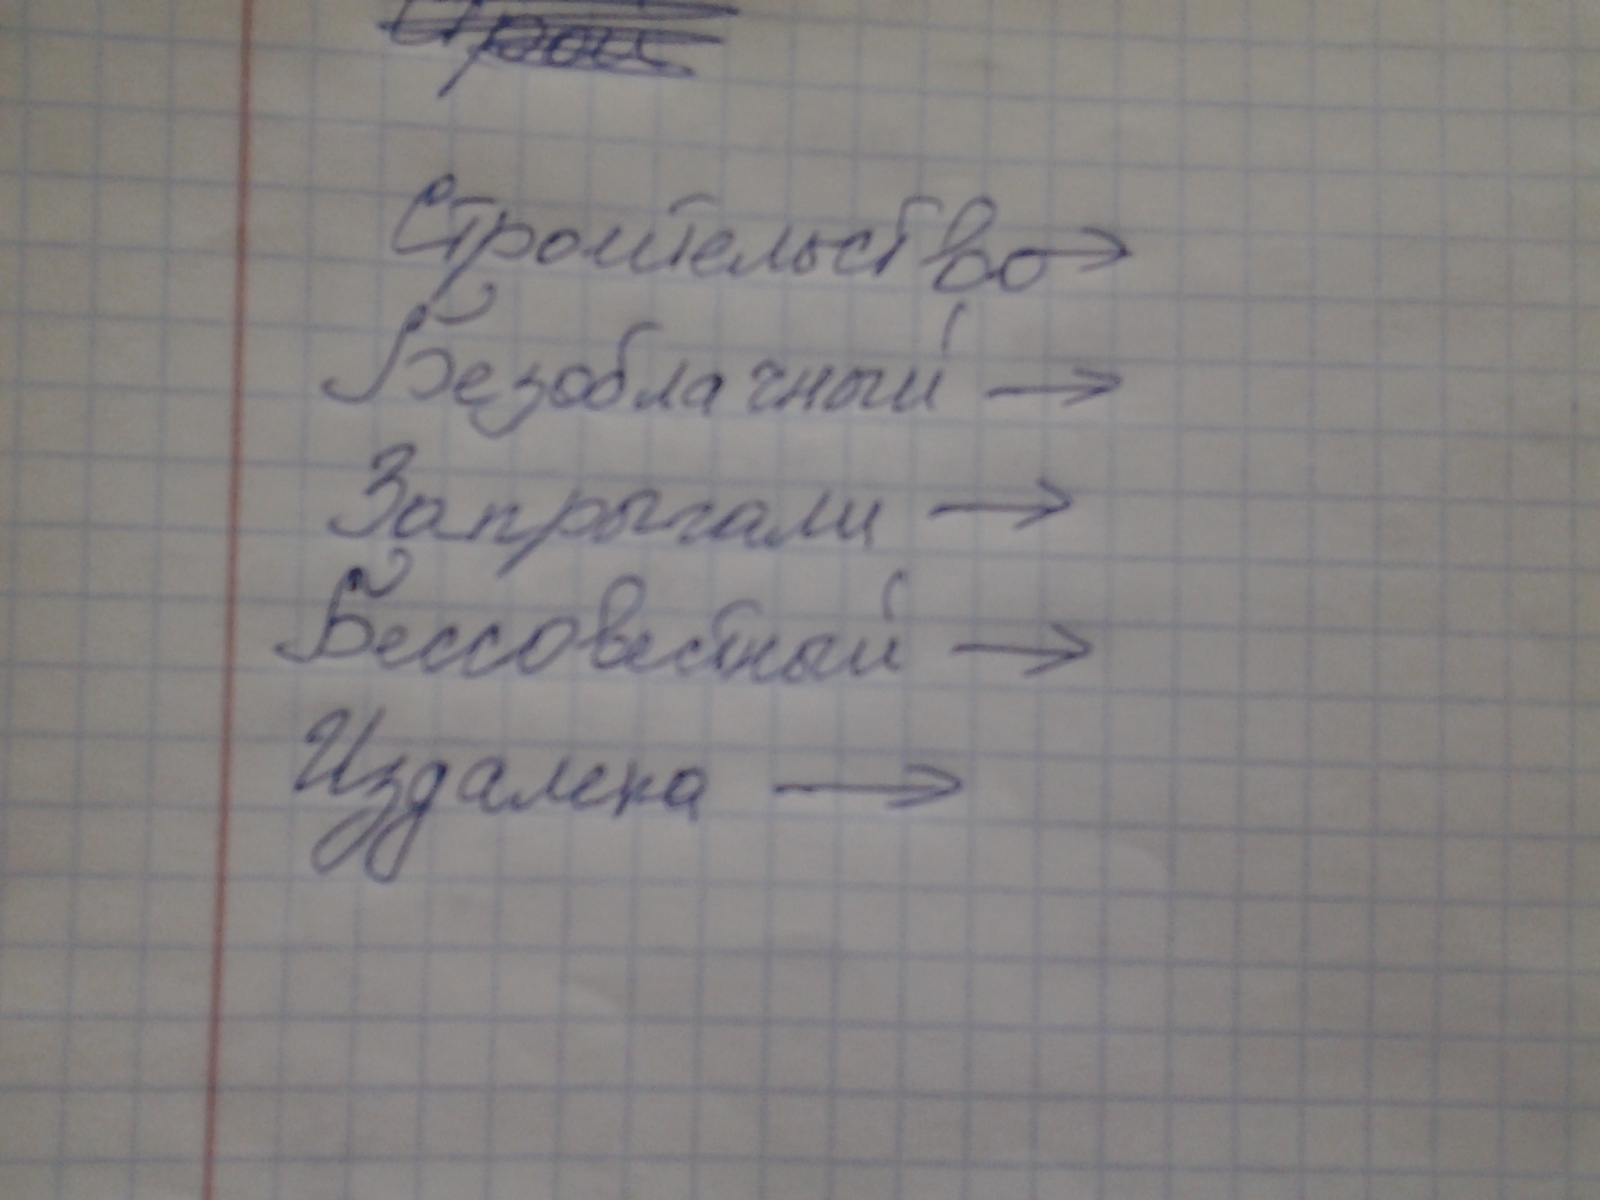 Строительство →
Безоблачный →
Запрыгали →
Бессовестный →
Издалека →